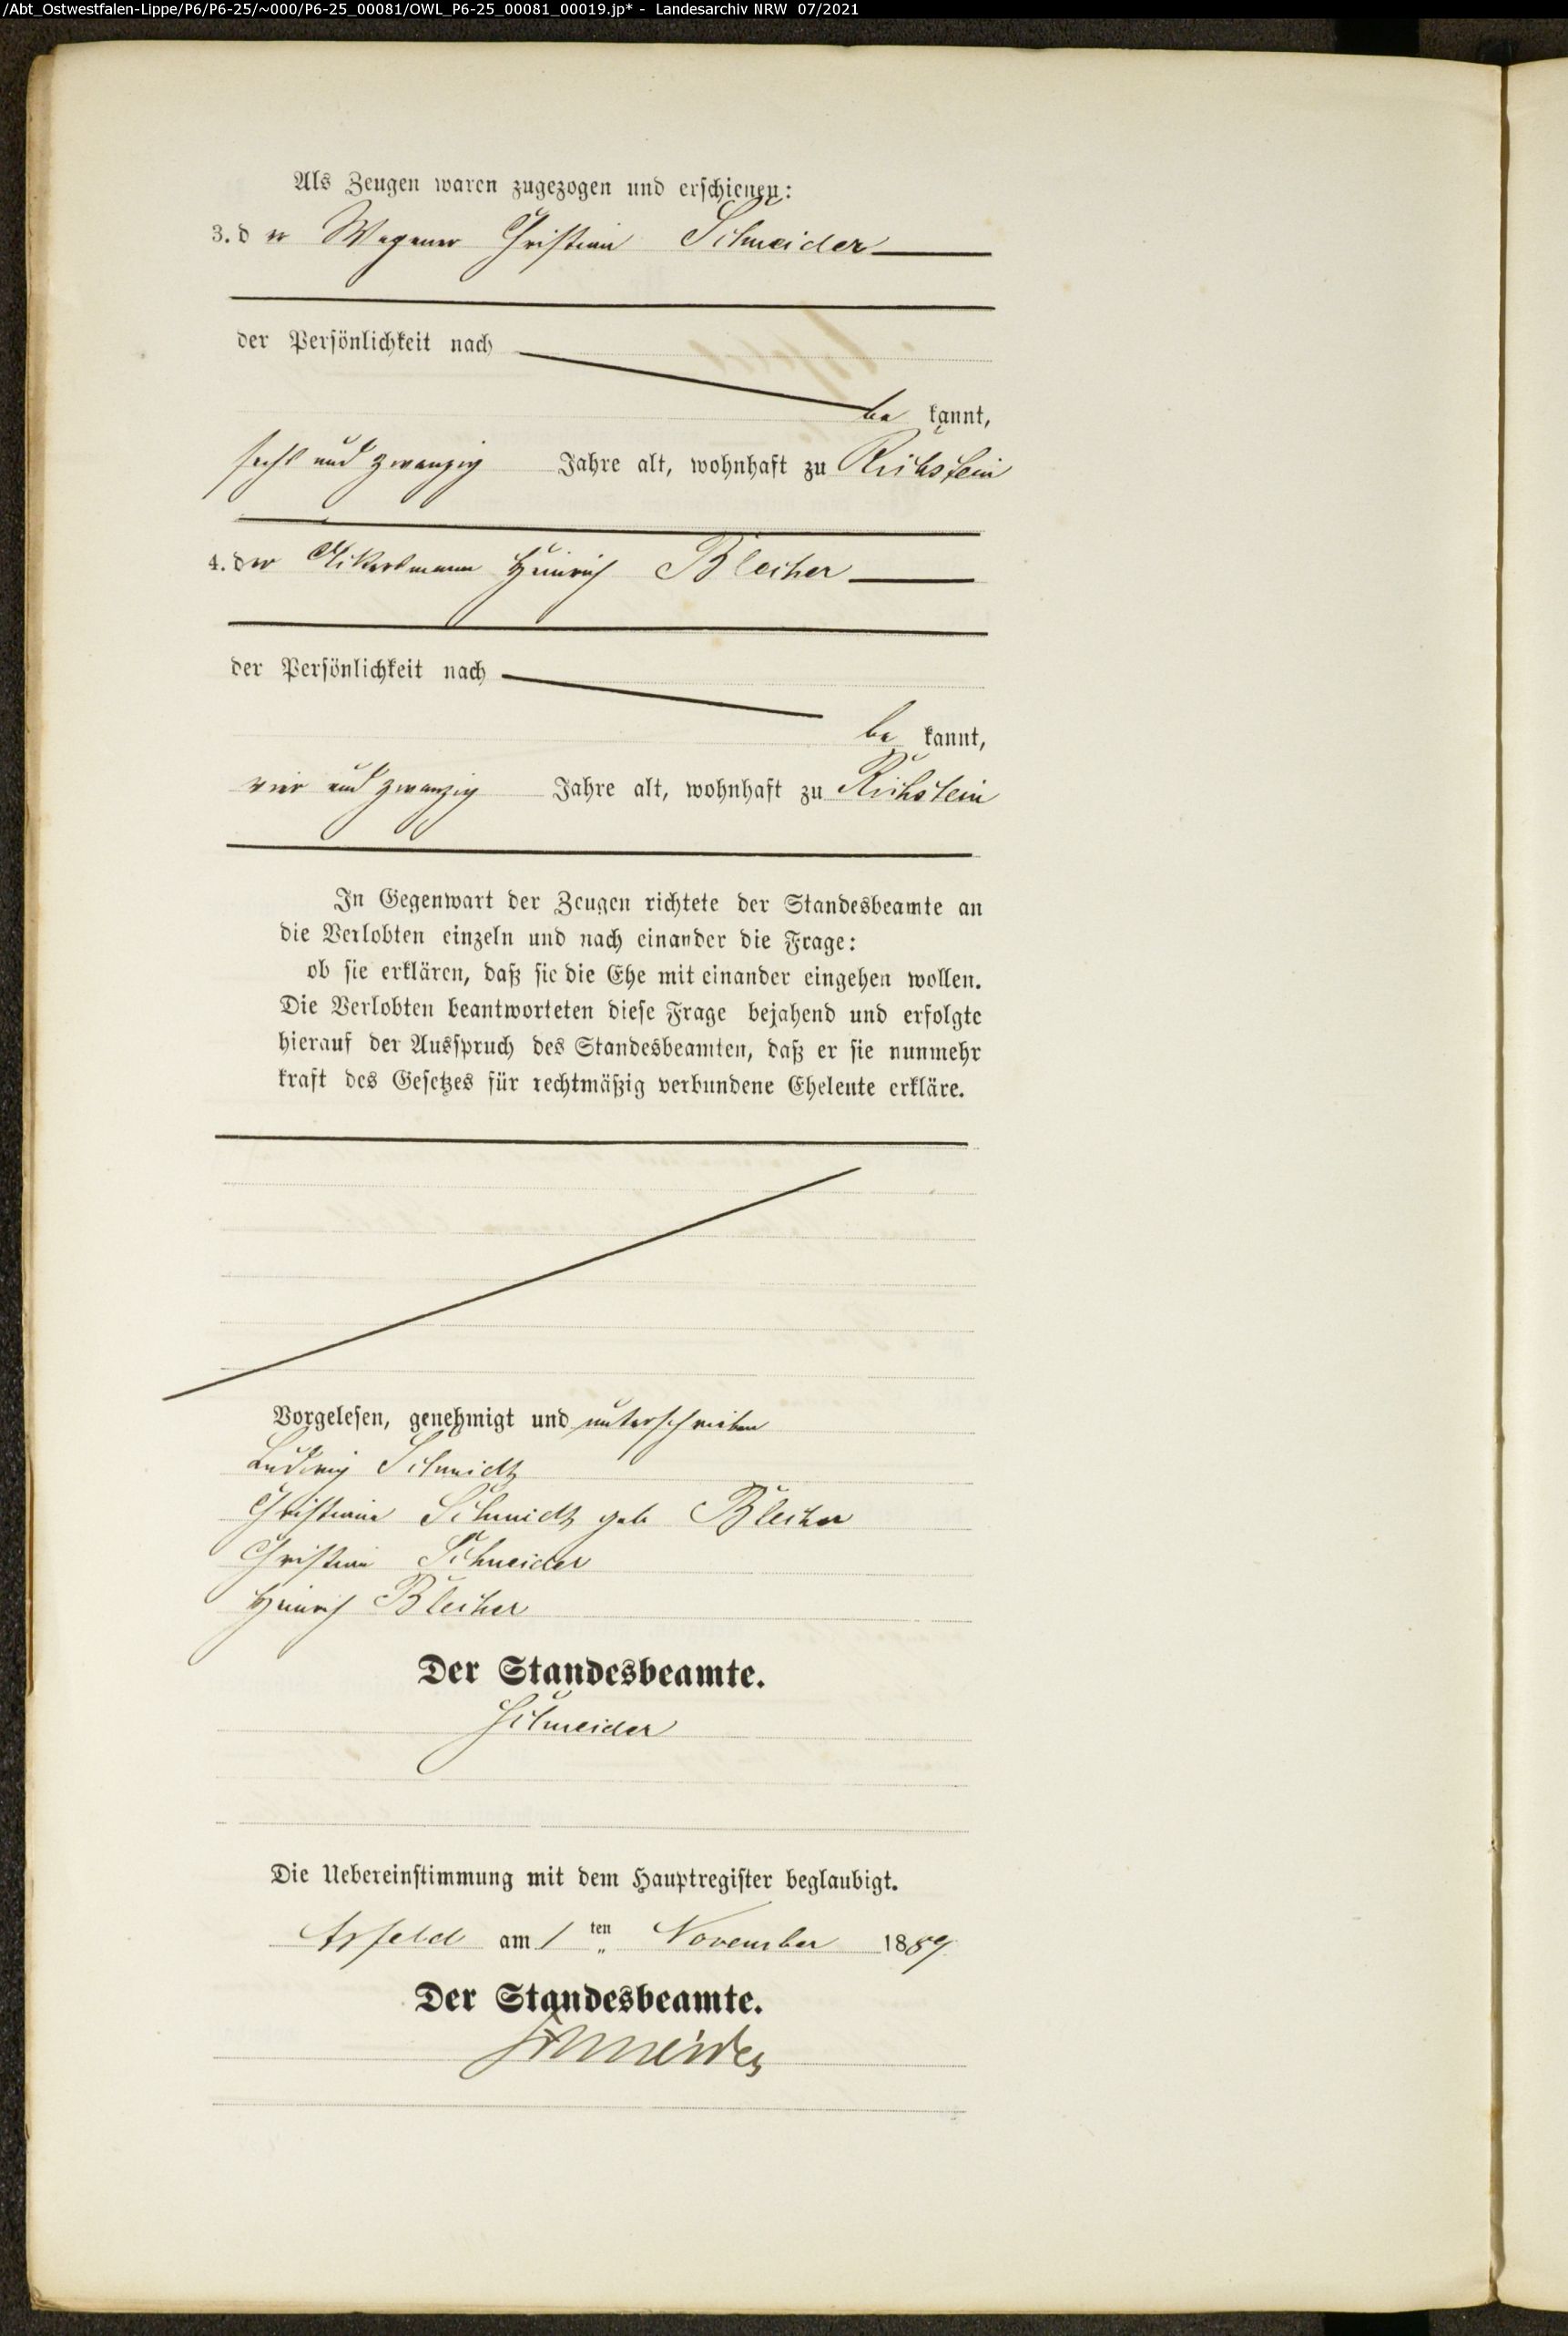 /Abt_Ostwestfalen-Lippe/P6/P6-25/~000/P6-25_00081/OWL_P6-25_00081_00019.jp* - Landesarchiv NRW 07/2021
Als Zeugen waren zugezogen und erschienen:
3. d er Wagener Christian Schneider
der Persönlichkeit nach
be kannt,
sechs und zwanzig Jahre alt, wohnhaft zu Richstein
4. der Ackersmann Heinrich Bleicher
der Persönlichkeit nach
be kannt,
vier und zwanzig Jahre alt, wohnhaft zu Richstein
In Gegenwart der Zeugen richtete der Standesbeamte an
die Verlobten einzeln und nach einander die Frage:
ob sie erklären, daß sie die Ehe mit einander eingehen wollen.
Die Verlobten beantworteten diese Frage bejahend und erfolgte
hierauf der Ausspruch des Standesbeamten, daß er sie nunmehr
kraft des Gesetzes für rechtmäßig verbundene Eheleute erkläre.
Vorgelesen, genehmigt und unterschrieben
Ludwig Schmidt
Christiane Schmidt geb Bleicher
Christian Schneider
Heinrich Bleicher
Der Standesbeamte.
Schneider
Die Uebereinstimmung mit dem Hauptregister beglaubigt.
Arfeld am 1 ten November 1889
Der Standesbeamte.
Schneider